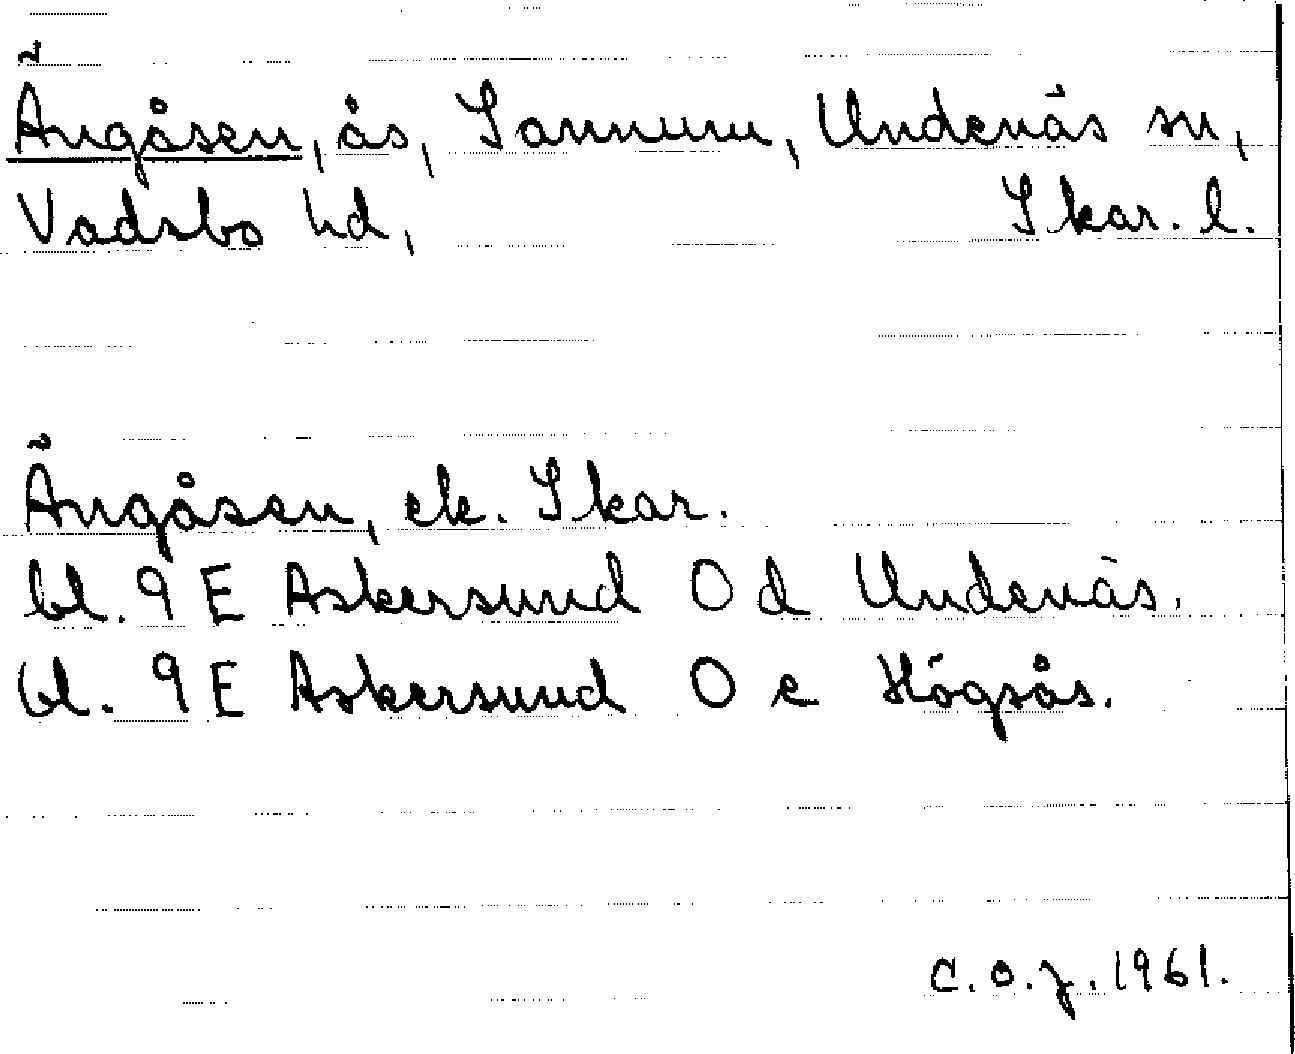 Ängåsen, ås, Sannum, Undenäs sn,
Vadsbo hd, Skar. l.
Ängåsen, ek. Skar.
bl. 9 E Askersund 0 d Undenäs.
bl. 9 E Askersund 0 e Högsås.
C.O.J. 1961.